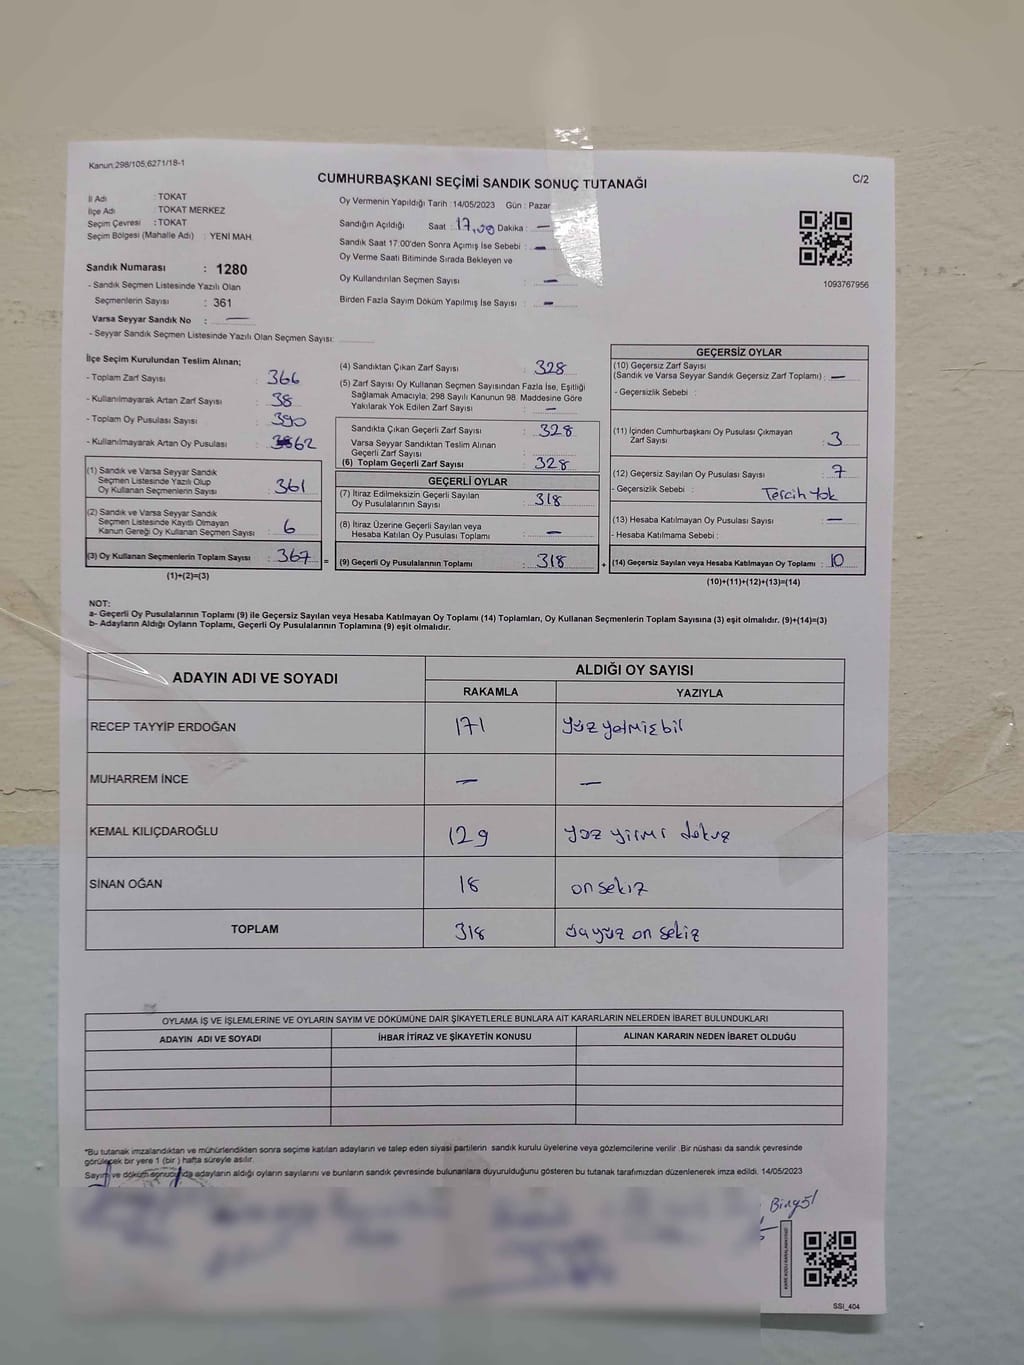 Kanun,298/105,6271/18-1
CUMHURBAŞKANI SEÇİMİ SANDIK SONUÇ TUTANAĞI
C/2
İl Adı : TOKAT
İlçe Adı TOKAT MERKEZ
Seçim Çevresi : TOKAT
Seçim Bölgesi (Mahalle Adı) : YENİ MAH.
Sandık Numarası : 1280
- Sandık Seçmen Listesinde Yazılı Olan
Seçmenlerin Sayısı : 361
Varsa Seyyar Sandık No : —
- Seyyar Sandık Seçmen Listesinde Yazılı Olan Seçmen Sayısı:
Oy Vermenin Yapıldığı Tarih : 14/05/2023 Gün : Pazar
Sandığın Açıldığı Saat : 17,00 Dakika : —
Sandık Saat 17:00'den Sonra Açımış İse Sebebi : —
Oy Verme Saati Bitiminde Sırada Bekleyen ve
Oy Kullandırılan Seçmen Sayısı : —
Birden Fazla Sayım Döküm Yapılmış İse Sayısı : —
1093767956
İlçe Seçim Kurulundan Teslim Alınan;
- Toplam Zarf Sayısı : 366
- Kullanılmayarak Artan Zarf Sayısı : 38
- Toplam Oy Pusulası Sayısı : 390
- Kullanılmayarak Artan Oy Pusulası : 62
(1) Sandık ve Varsa Seyyar Sandık
Seçmen Listesinde Yazılı Olup
Oy Kullanan Seçmenlerin Sayısı : 361
(2) Sandık ve Varsa Seyyar Sandık
Seçmen Listesinde Kayıtlı Olmayan
Kanun Gereği Oy Kullanan Seçmen Sayısı : 6
(3) Oy Kullanan Seçmenlerin Toplam Sayısı : 367 =
(1)+(2)=(3)
(4) Sandıktan Çıkan Zarf Sayısı : 328
(5) Zarf Sayısı Oy Kullanan Seçmen Sayısından Fazla İse, Eşitliği
Sağlamak Amacıyla; 298 Sayılı Kanunun 98. Maddesine Göre
Yakılarak Yok Edilen Zarf Sayısı : —
Sandıkta Çıkan Geçerli Zarf Sayısı : 328
Varsa Seyyar Sandıktan Teslim Alınan
Geçerli Zarf Sayısı :
(6) Toplam Geçerli Zarf Sayısı : 328
GEÇERLİ OYLAR
(7) İtiraz Edilmeksizin Geçerli Sayılan
Oy Pusulalarının Sayısı : 318
(8) İtiraz Üzerine Geçerli Sayılan veya
Hesaba Katılan Oy Pusulası Toplamı : —
(9) Geçerli Oy Pusulalarının Toplamı : 318 +
GEÇERSİZ OYLAR
(10) Geçersiz Zarf Sayısı
(Sandık ve Varsa Seyyar Sandık Geçersiz Zarf Toplamı) : —
- Geçersizlik Sebebi :
(11) İçinden Cumhurbaşkanı Oy Pusulası Çıkmayan
Zarf Sayısı : 3
(12) Geçersiz Sayılan Oy Pusulası Sayısı : 7
- Geçersizlik Sebebi : Tercih Yok
(13) Hesaba Katılmayan Oy Pusulası Sayısı : —
- Hesaba Katılmama Sebebi :
(14) Geçersiz Sayılan veya Hesaba Katılmayan Oy Toplamı : 10
(10)+(11)+(12)+(13)=(14)
NOT:
a- Geçerli Oy Pusulalarının Toplamı (9) ile Geçersiz Sayılan veya Hesaba Katılmayan Oy Toplamı (14) Toplamları, Oy Kullanan Seçmenlerin Toplam Sayısına (3) eşit olmalıdır. (9)+(14)=(3)
b- Adayların Aldığı Oyların Toplamı, Geçerli Oy Pusulalarının Toplamına (9) eşit olmalıdır.
ADAYIN ADI VE SOYADI ALDIĞI OY SAYISI
RAKAMLA YAZIYLA
RECEP TAYYİP ERDOĞAN 171 yüz yetmiş bil
MUHARREM İNCE — —
KEMAL KILIÇDAROĞLU 129 yüz yirmi dokuz
SİNAN OĞAN 18 on sekiz
TOPLAM 318 üçyüz on sekiz
OYLAMA İŞ VE İŞLEMLERİNE VE OYLARIN SAYIM VE DÖKÜMÜNE DAİR ŞİKAYETLERLE BUNLARA AİT KARARLARIN NELERDEN İBARET BULUNDUKLARI
ADAYIN ADI VE SOYADI İHBAR İTİRAZ VE ŞİKAYETİN KONUSU ALINAN KARARIN NEDEN İBARET OLDUĞU
*Bu tutanak imzalandıktan ve mühürlendikten sonra seçime katılan adayların ve talep eden siyasi partilerin sandık kurulu üyelerine veya gözlemcilerine verilir. Bir nüshası da sandık çevresinde
görülecek bir yere 1 (bir ) hafta süreyle asılır.
Sayım ve döküm sonucunda adayların aldığı oyların sayılarını ve bunların sandık çevresinde bulunanlara duyurulduğunu gösteren bu tutanak tarafımızdan düzenlenerek imza edildi. 14/05/2023
SSI_404